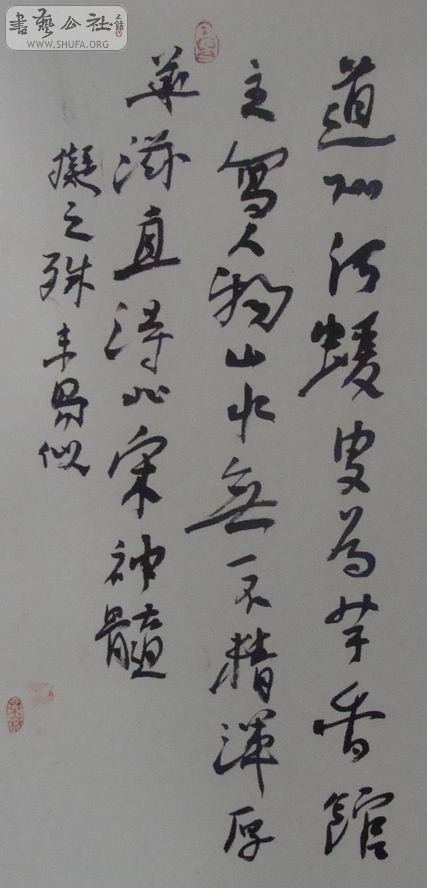 書藝公社
WWW.SHUFA.ORG
道州何蝯叟為芋香館
主寫人物山水無一不精渾厚
華滋直得北宋神髓
擬之殊未易似